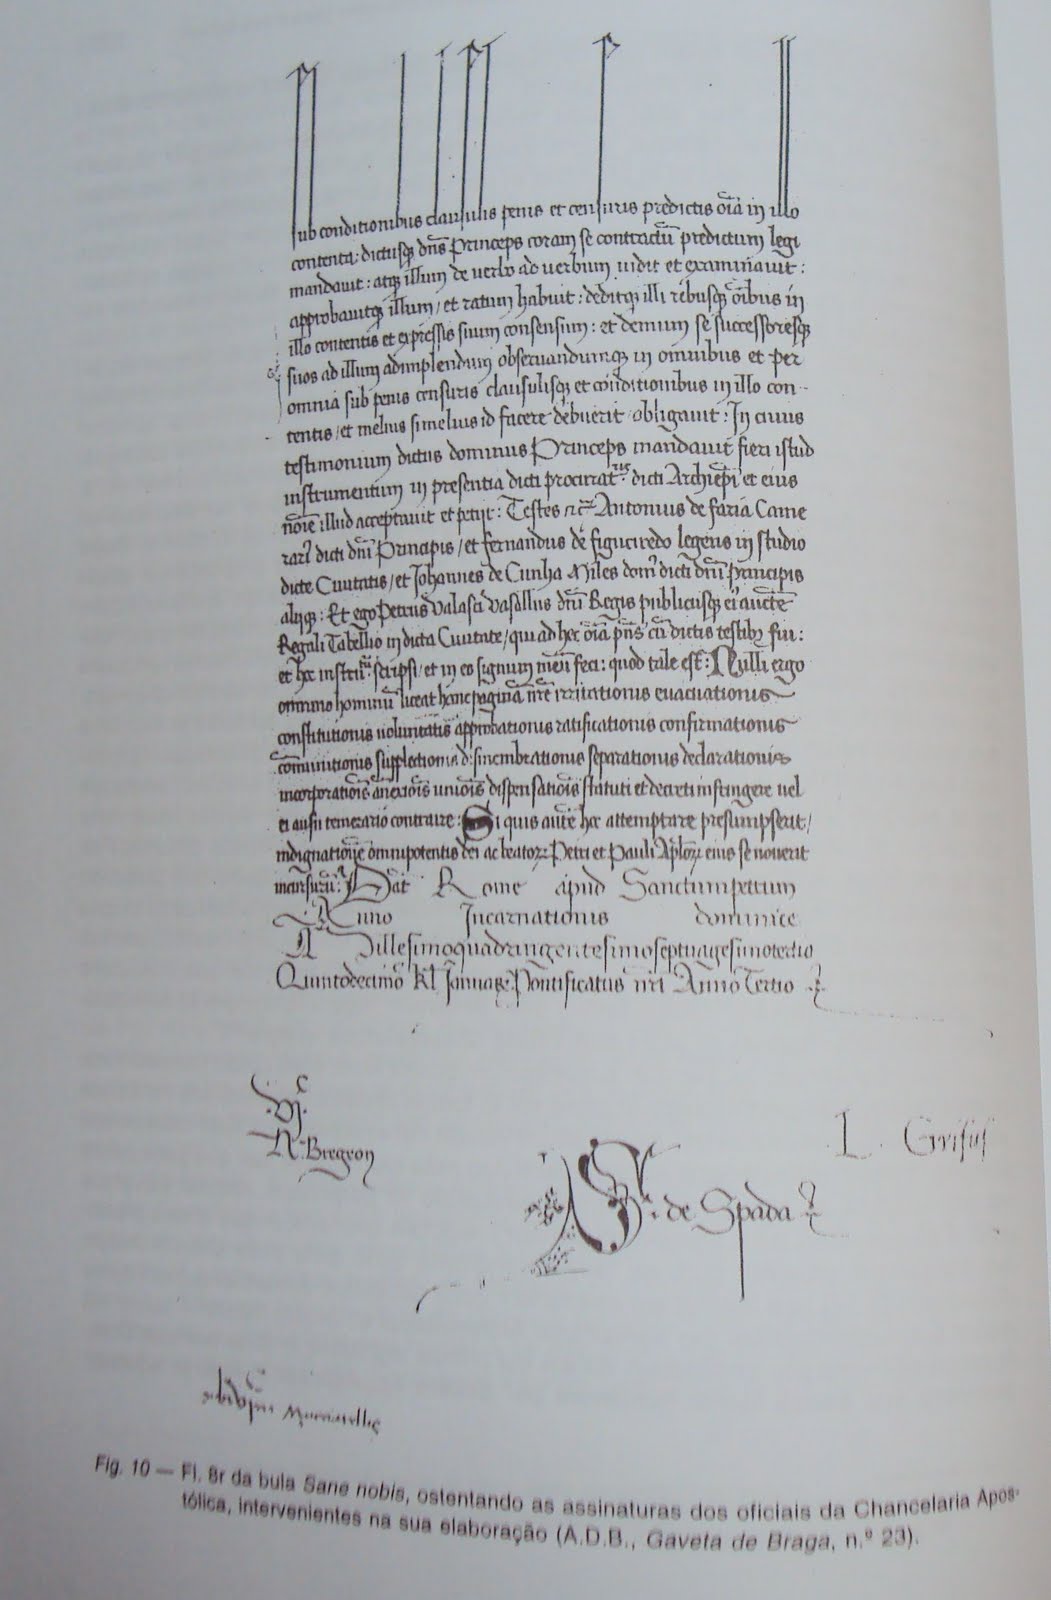 sub conditionibus clausulis penis et censuris predictis oīa in illo
contenta: dictusq dn̄s Princeps coram se contractū predictum legi
mandavit: atq illum de verbo ad verbum vidit et examinavit:
approbavitq illum/ et ratum habuit: deditq illi rebusq oībus in
illo contentis et expressis suum consensum: et demum se successoresq
suos ad illum adimplendum observandumq in omnibus et per
omnia sub penis censuris clausulisq et conditionibus in illo con-
tentis/ et melius si melius id facere debuerit obligavit: In cuius
testimonium dictus dominus Princeps mandavit fieri istud
instrumentum in presentia dicti procurat. dicti Archiepi et eius
noīe illud acceptavit et petijt: Testes Antonius de faria Came
rari dicti dn̄i Principis/ et fernandus de figueiredo legens in studio
dicte Civitatis/ et Johannes de Cunha Miles dom dicti dn̄i principis
alijq: Et ego Petrus Valasci Vasallus dn̄i Regis publicusq ei aucte
Regali Tabellio in dicta Civitate/ qui ad hec oīa pn̄s cū dictis testibz fui:
et hec instrū. scripsi/ et in eo signum meū feci: quod tale est: Nulli ergo
omnino hominū liceat hanc paginā nr̄e irritationis evacuationis
constitutionis voluntatis approbationis ratificationis confirmationis
cōmunitionis supplectionis dismembrationis separationis declarationis
incorporatiōis anexiōis uniōis dispensatiōis statuti et decreti infringere vel
ei ausu temerario contraire: Si quis autē hec attemptare presumpserit/
indignationē omnipotentis dei ac beatorz Petri et Pauli Aplorz eius se noverit
incursurū: Dat Rome apud Sanctumpetrum
Anno Incarnationis dominice
Millesimoquadringentesimoseptuagesimotertio
Quintodecimo kl Januar Pontificatus nr̄i Anno Tertio
N. Bregeon
L. Grifus
de Spada
Fig. 10 — Fl. 8r da bula Sane nobis, ostentando as assinaturas dos oficiais da Chancelaria Apos-
tólica, intervenientes na sua elaboração (A.D.B., Gaveta de Braga, n.º 23).